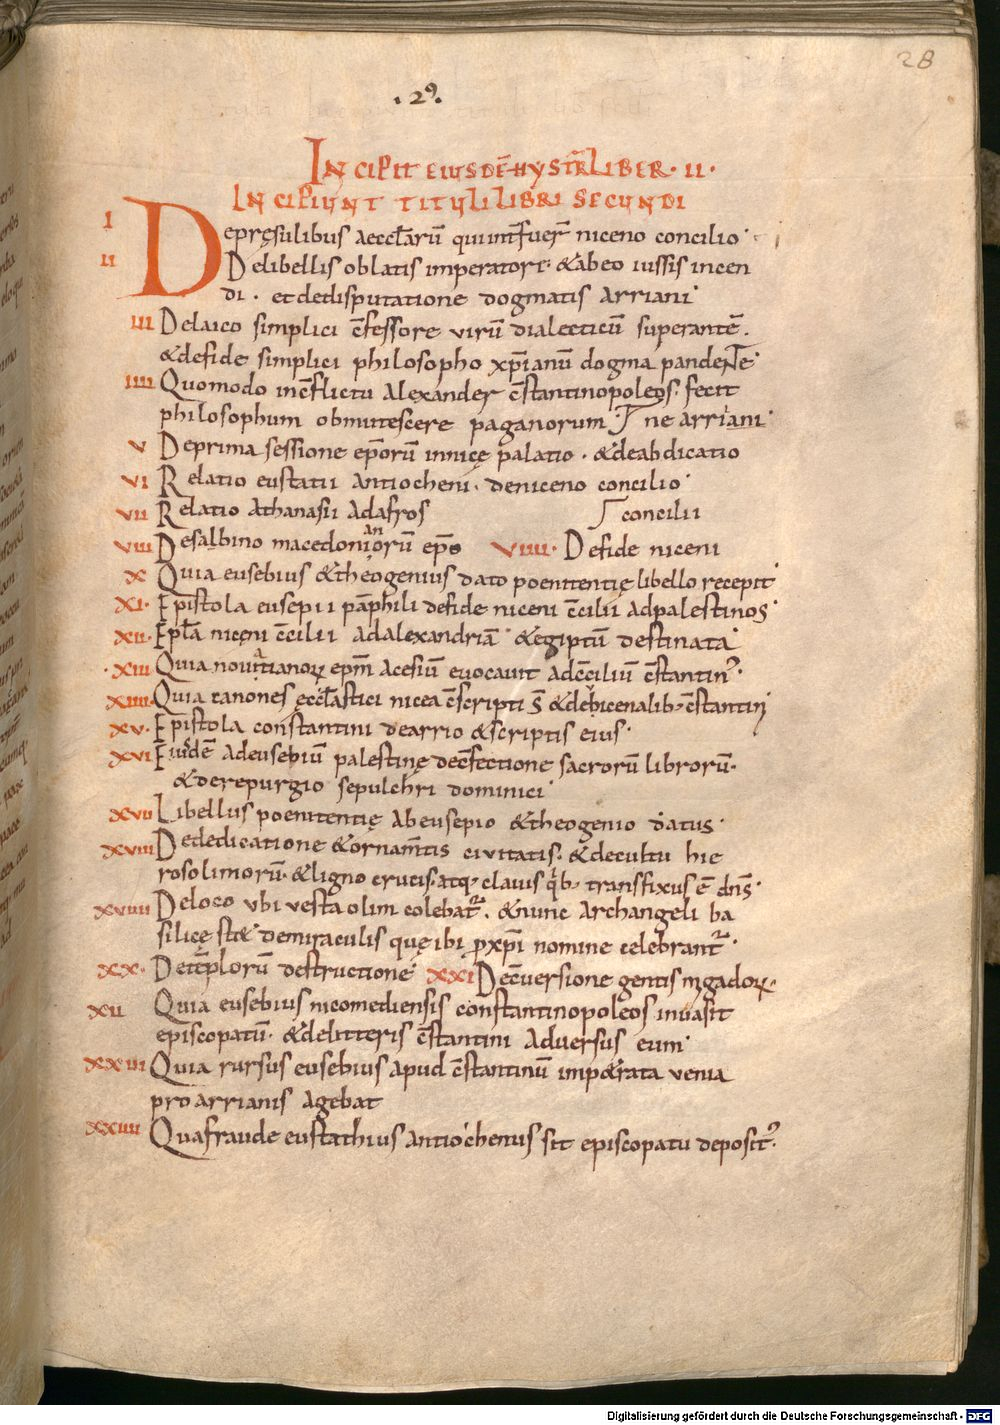 28
.29.
INCIPIT EIUSDĒ HYSTR̄ LIBER · II ·
INCIPIUNT TITULI LIBRI SECUNDI
I Depręsulibus aeccl̄arū quiint̄fuer̄ niceno concilio
II Delibellis oblatis imperatori· &abeo iussis incen
di · et dedisputatione dogmatis arriani
III Delaico simplici c̄fessore virū dialecticū superantē.
&defide simplici philosopho xp̄ianū dogma pandente
IIII Quomodo inc̄flictu alexander c̄stantinopoleos· fecit
philosophum obmutescere paganorum ne arriani
V Deprima sessione ep̄orū innicę palatio · &deabdicatio
VI Relatio eustatii antiocheni· deniceno concilio
VII Relatio athanasii adafros concilii
VIII Desalbino macedonianorū ep̄o VIIII· Defide niceni
X Quia eusebius &theogenius dato poenitentię libello recepit
XI· Epistola eusepii pāphili defide niceni c̄cilii adpalestinos
XII· Epl̄a niceni c̄cilii adalexandriā &egiptū destinata
XIII Quia novatianoꝝ epm̄ acesiū evocavit adc̄ciliū c̄stantin᾿
XIIII Quia canones ęccl̄astici nicea c̄scripti s̄ &debicenalib; c̄stantini
XV· Epistola constantini dearrio &scriptis eius
XVI Eiusdē adeusebiū palestinę dec̄fectione sacrorū librorū·
&derepurgio sepulchri dominici
XVII Libellus poenitentię abeusepio &theogenio datus
XVIII Dededicatione &ornam̄tis civitatis· &decultu hie
rosolimorū· &ligno crucis· atq; clavis qͥb; transfixus ē dn̄s·
XVIIII Deloco ubi vesta olim colebat᾿. &nunc archangeli ba
silicę st̄ę demiraculis quę ibi ꝑxp̄i nomine celebrant᾿
XX· Detēplorū destructione XXI Dec̄versione gentis nigadoꝝ·
XII Quia eusebius nicomediensis constantinopoleos invasit
episcopatū· &delitteris c̄stantini adversus eum
XXIII Quia rursus eusebius apud c̄stantinū imperata venia
pro arrianis agebat
XXIIII Quafraude eustathius antiochenus sit episcopatu deposit᾿·
Digitalisierung gefördert durch die Deutsche Forschungsgemeinschaft - DFG